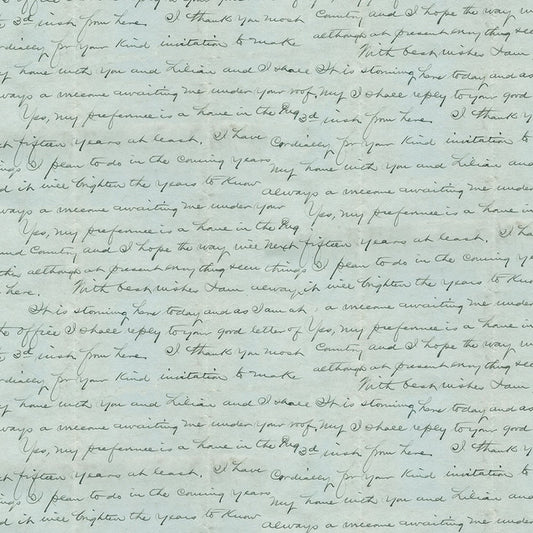 office I shall reply to your good letter of Yes, my preference is a home in
3d inst from here. I thank you most Country and I hope the way w
ordially for your kind invitation to make although at present every thing see
With best wishes I am
y home with you and Lilian and I shall It is storming here today and as
ways a welcome awaiting me under your roof. my I shall reply to your good
Yes, my preference is a home in the 3d inst from here. I thank y
t fifteen years at least. I have Cordially for your kind invitation to
ings I plan to do in the coming years my home with you and Lilian and
d it will brighten the years to know always a welcome awaiting me under
ways a welcome awaiting me under your Yes, my preference is a home in
Yes, my preference is a home in the
and Country and I hope the way will next fifteen years at least. I ha
this although at present every thing seem things I plan to do in the coming
here. With best wishes I am always it will brighten the years to know
It is storming here today and as I am at a welcome awaiting me under
office I shall reply to your good letter of Yes, my preference is a home in
3d inst from here. I thank you most Country and I hope the way w
ordially for your kind invitation to make although at present every thing see
With best wishes I am
y home with you and Lilian and I shall It is storming here today and as
ways a welcome awaiting me under your roof. my I shall reply to your good
Yes, my preference is a home in the 3d inst from here. I thank y
t fifteen years at least. I have Cordially for your kind invitation to
ings I plan to do in the coming years my home with you and Lilian and
d it will brighten the years to know always a welcome awaiting me under